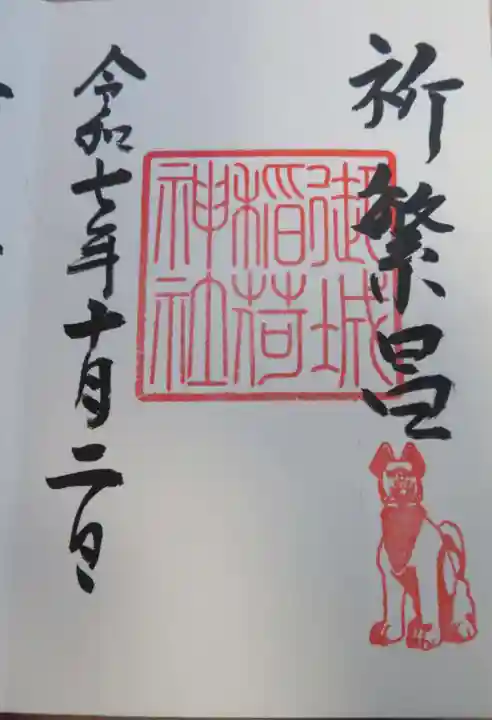 祈繁昌
御城
稲荷
神社
令和七年十月二日